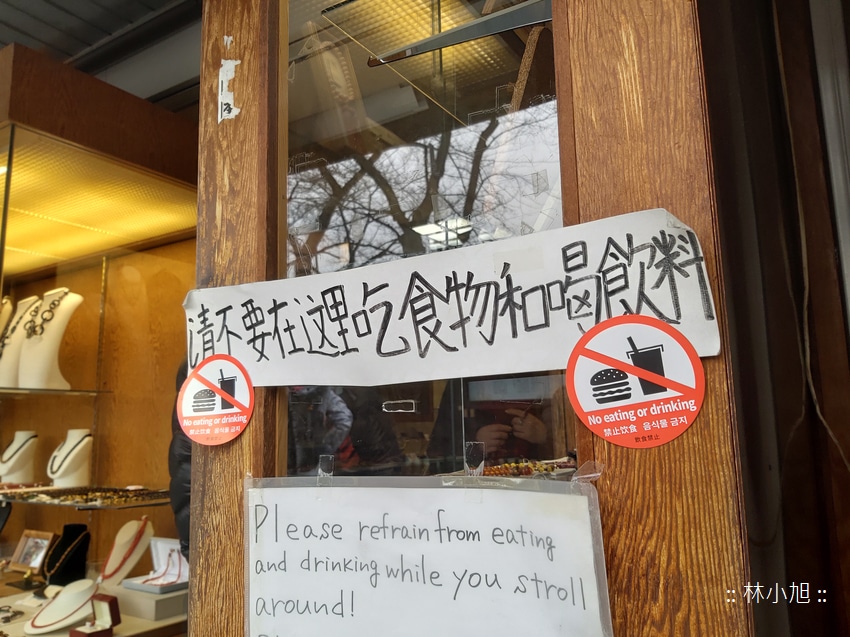 请不要在这里吃食物和喝飲料
No eating or drinking
禁止饮食 음식물 금지
No eating or drinking
禁止饮食 음식물 금지
飲食禁止
Please refrain from eating
and drinking while you stroll
around!
:: 林小旭 ::